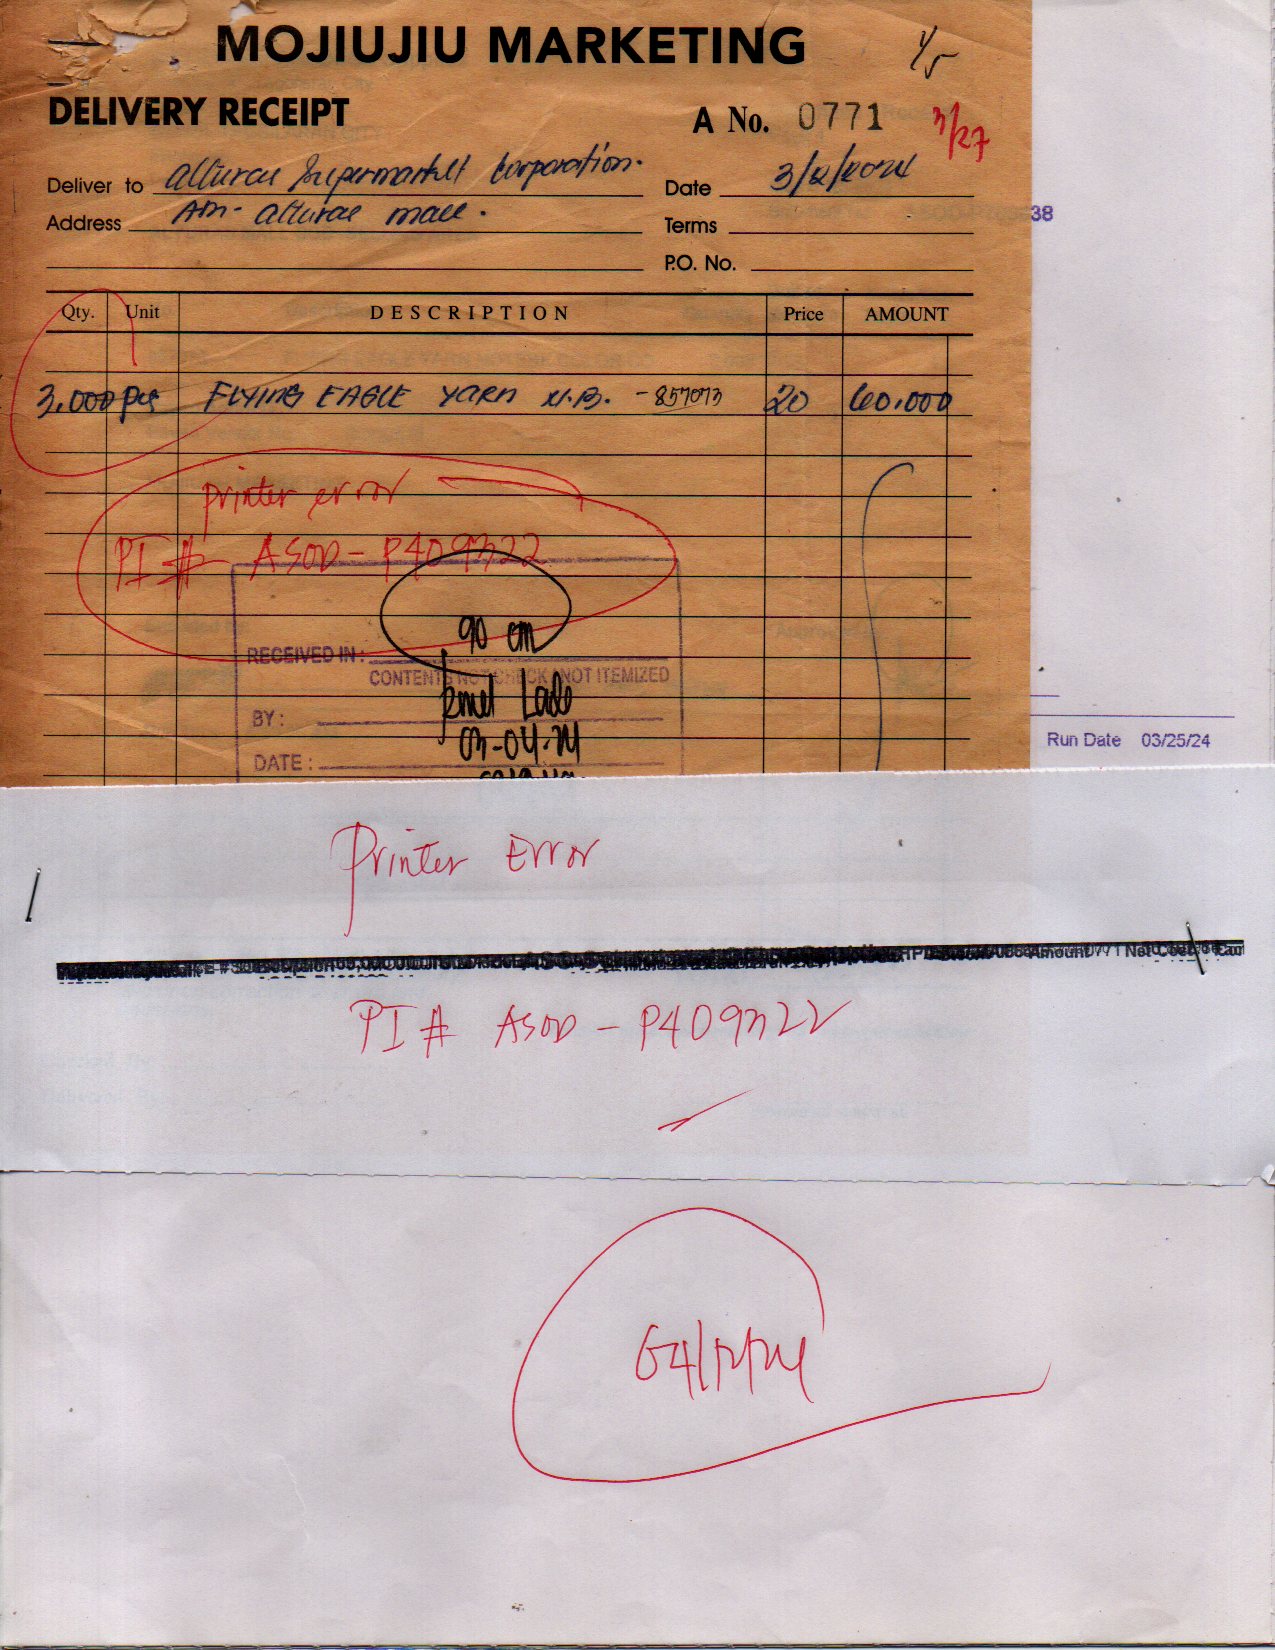 MOJIUJIU MARKETING
1/5
DELIVERY RECEIPT
A No. 0771
3/27
Deliver to Alturas Supermarket Corporation.
Date 3/2/2024
Address Alturas mall.
Terms
38
P.O. No.
Qty. Unit DESCRIPTION Price AMOUNT
3.000 pcs FLYING EAGLE YARN W.B. - 857073 20 60.000
printer error
PI# ASOD-P409322
90 cm
RECEIVED IN:
CONTENTS NOT CHECK / NOT ITEMIZED
BY:
03-04-24
DATE:
Run Date 03/25/24
Printer Error
PI# ASOD-P409322